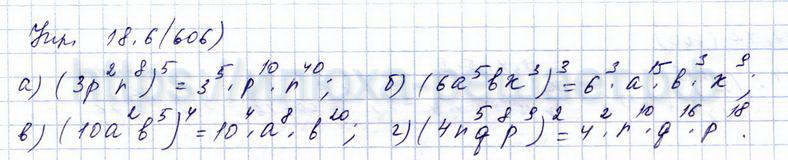 Упр. 18.6 (606)
а) (3p²n⁸)⁵ = 3⁵ · p¹⁰ · n⁴⁰; б) (6a⁵bx³)³ = 6³ · a¹⁵ · b³ · x⁹;
в) (10a²b⁵)⁴ = 10⁴ · a⁸ · b²⁰; г) (4n⁵q⁸p⁹)² = 4² · n¹⁰ · q¹⁶ · p¹⁸.